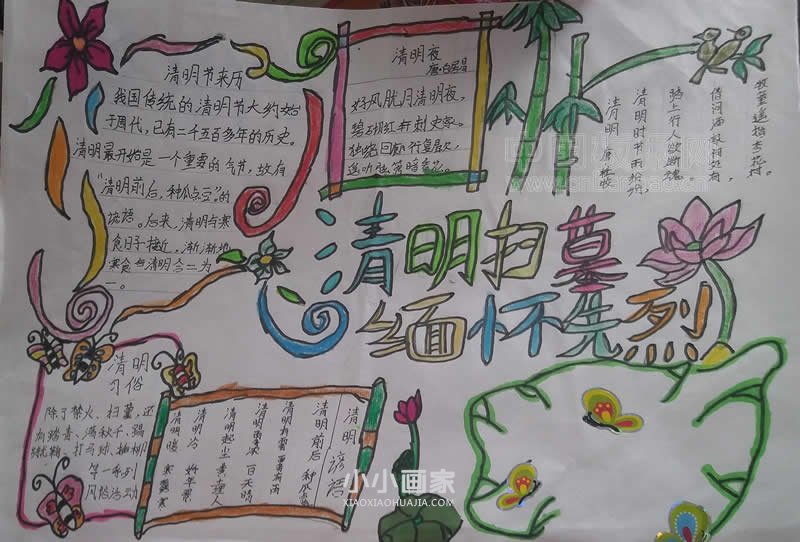 清明节来历
我国传统的清明节大约始
于周代,已有二千五百多年的历史。
清明最开始是一个重要的气节,故有
“清明前后,种瓜点豆”的
谚语。后来,清明与寒
食日子接近,渐渐地
寒食与清明合二为
一。
清明夜
唐·白居易
好风胧月清明夜,
碧砌红轩刺史家。
独绕回廊行复歇,
遥听弦管暗看花。
清明 唐 杜牧
清明时节雨纷纷,
路上行人欲断魂。
借问酒家何处有,
牧童遥指杏花村。
清明扫墓
缅怀先烈
清明
习俗
除了禁火、扫墓,还
有踏青、荡秋千、蹋
蹴鞠、打马球、插柳
等一系列
风俗活动
清明谚语
清明前后 种
清明有雾 夏有雨
清明雨渐 百天晴
清明起尘 黄土埋人
清明冷 好年景
清明暖 寒露寒
中国板报网
小小画家
XIAOXIAOHUAJIA.COM